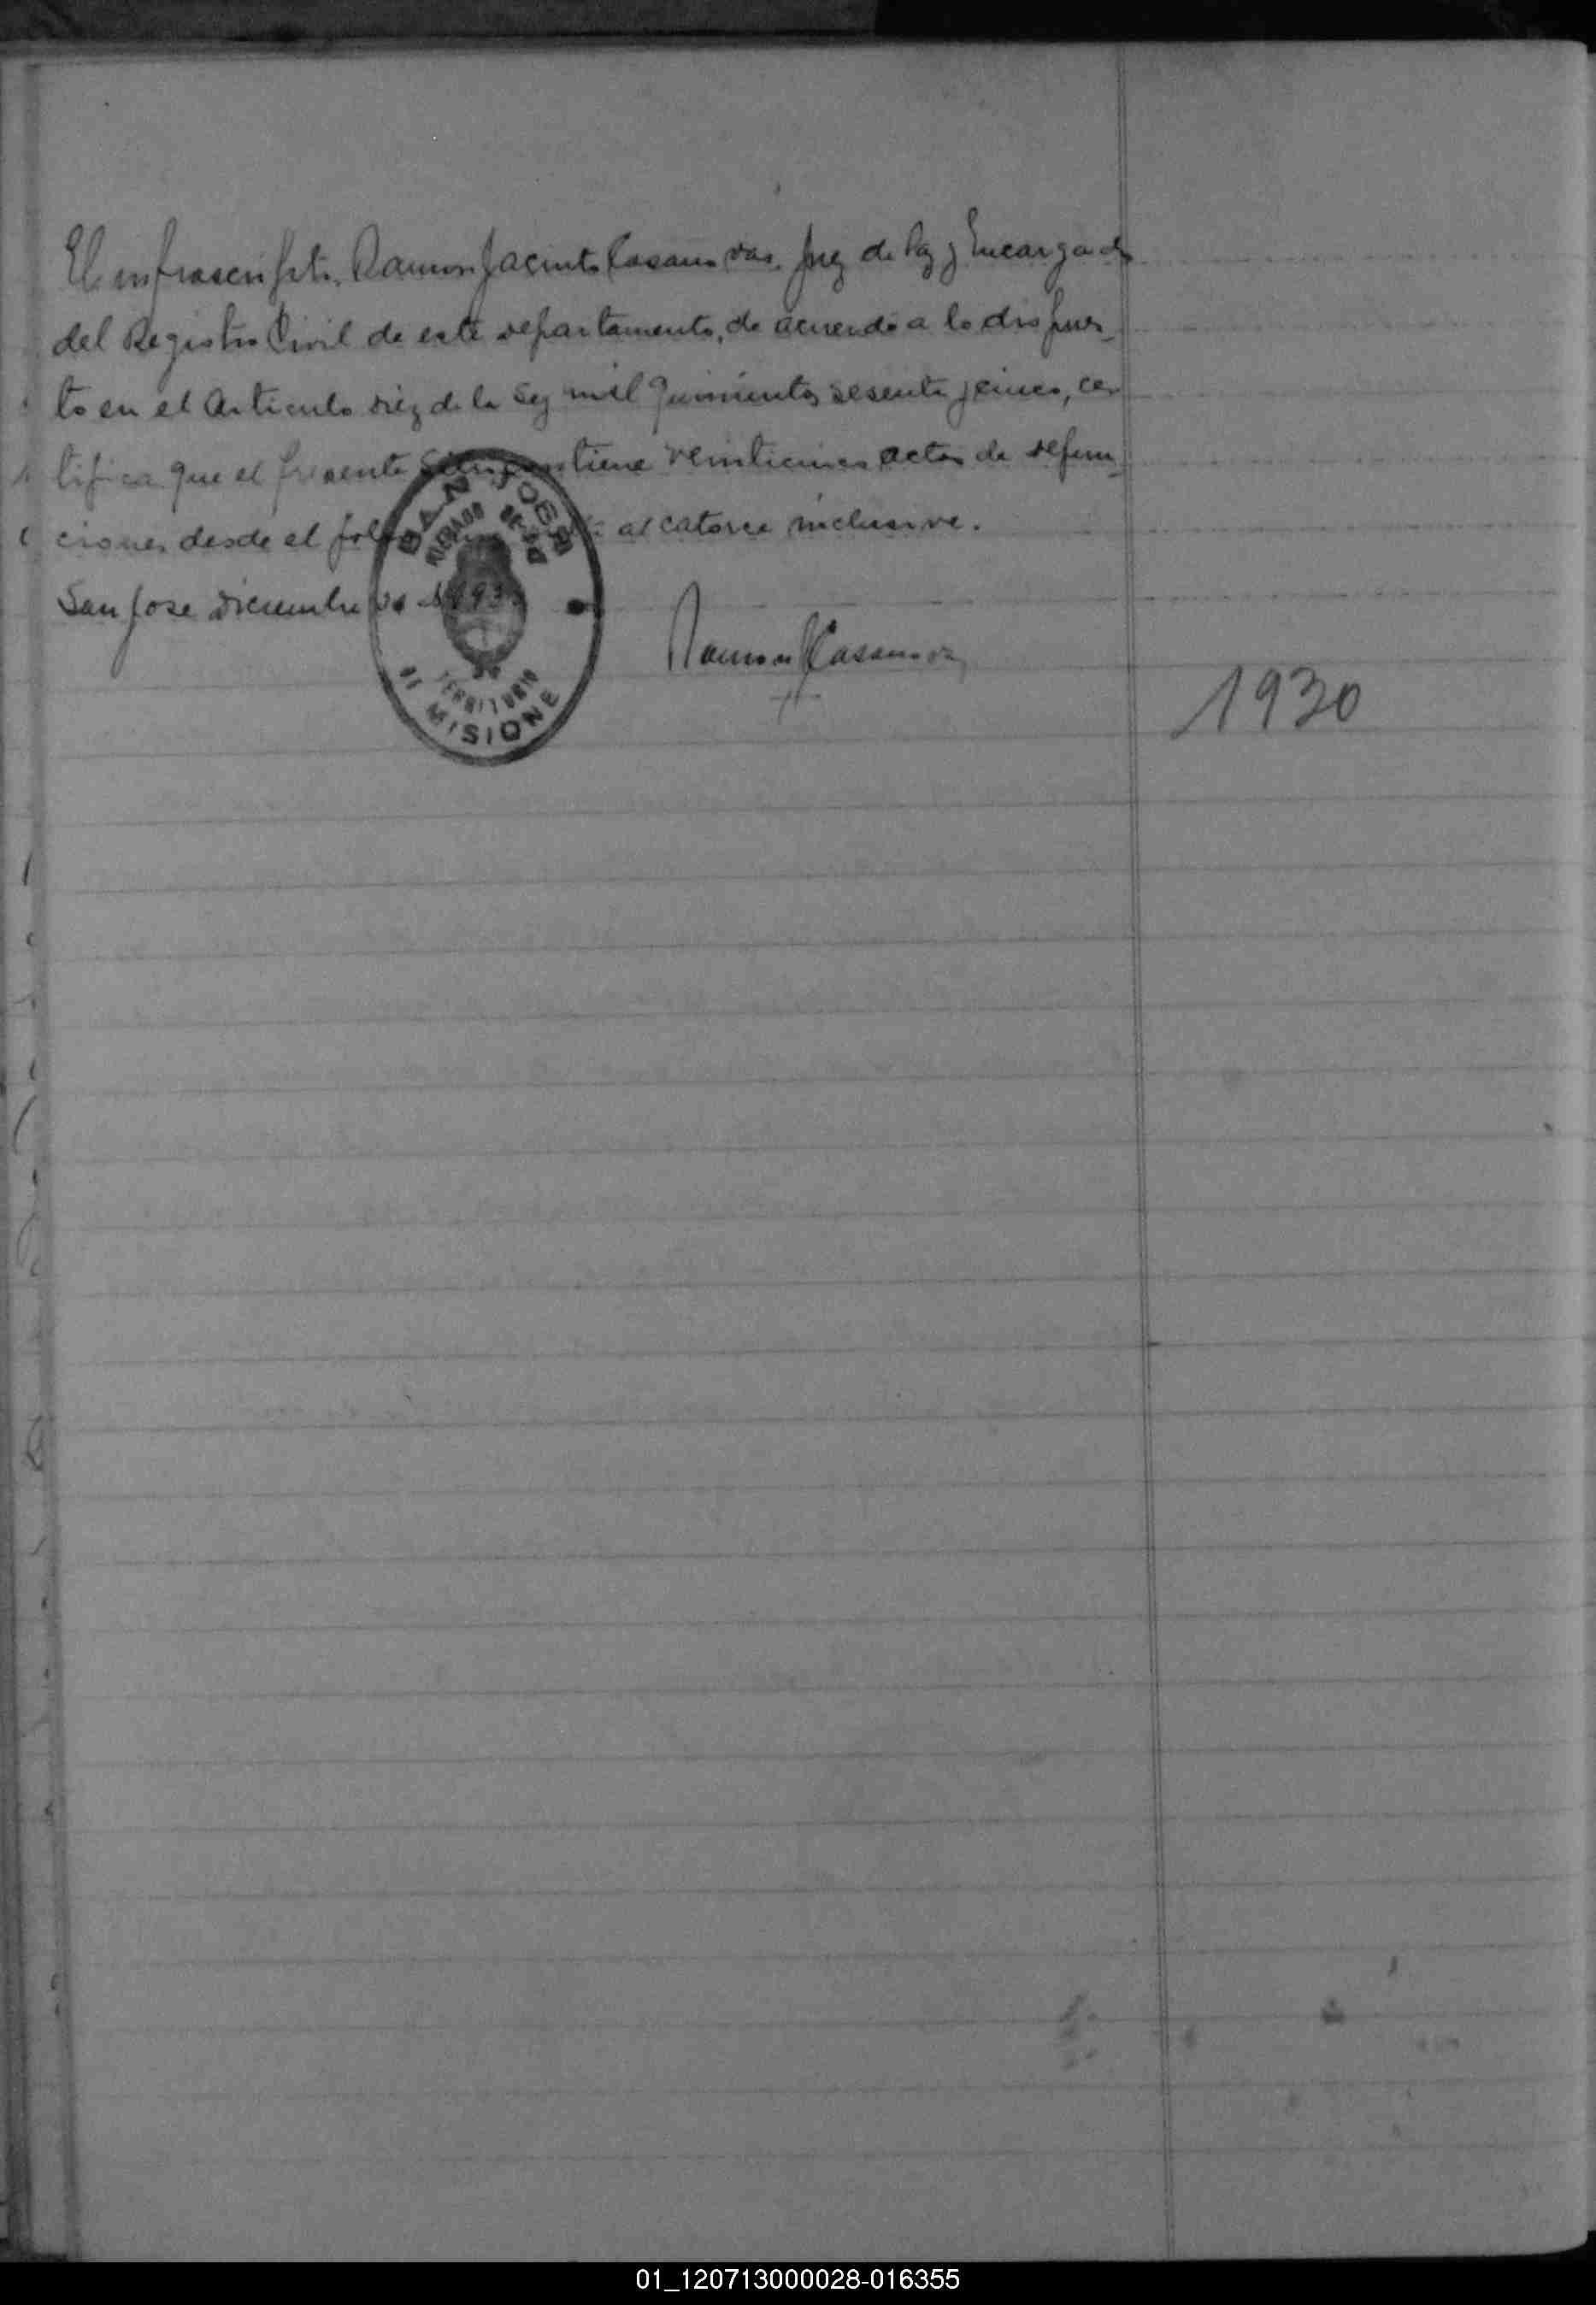 El infrascripto, Ramon Jacinto Casanovas, Juez de Paz y Encargado
del Registro Civil de este departamento, de acuerdo a lo dispues-
to en el Articulo diez de la Ley mil quinientos sesenta y cinco, cer
tifica que el presente contiene veinticinco actas de defun-
ciones desde el folio al catorce inclusive.
San Jose Diciembre 31 193
SAN JOSE
JUZGADO DE PAZ
TERRITORIO
DE MISIONE
Ramon J Casanovas
1930
01_120713000028-016355